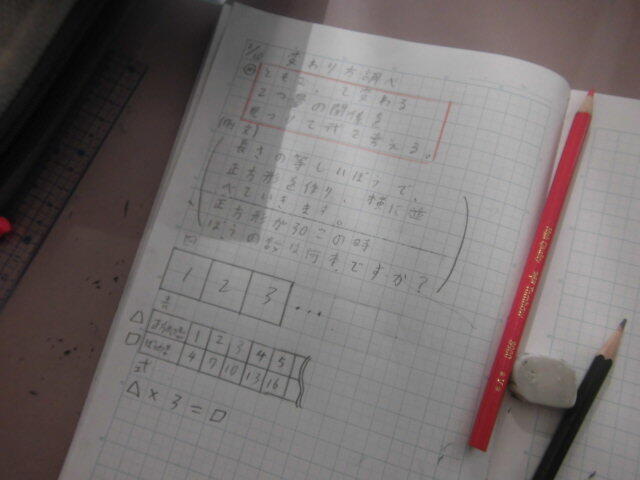 変わり方調べ
ともなって変わる
2つの量の関係を
見つけて式で考える。
(例文)
長さの等しいぼうで、
正方形を作り、横に並
べていきます。
正方形が30この時
ぼうの数は何本ですか?
図
1 2 3 …
表
△ 正方形の数 1 2 3 4 5
□ ぼうの数 4 7 10 13 16
式
△×3=□